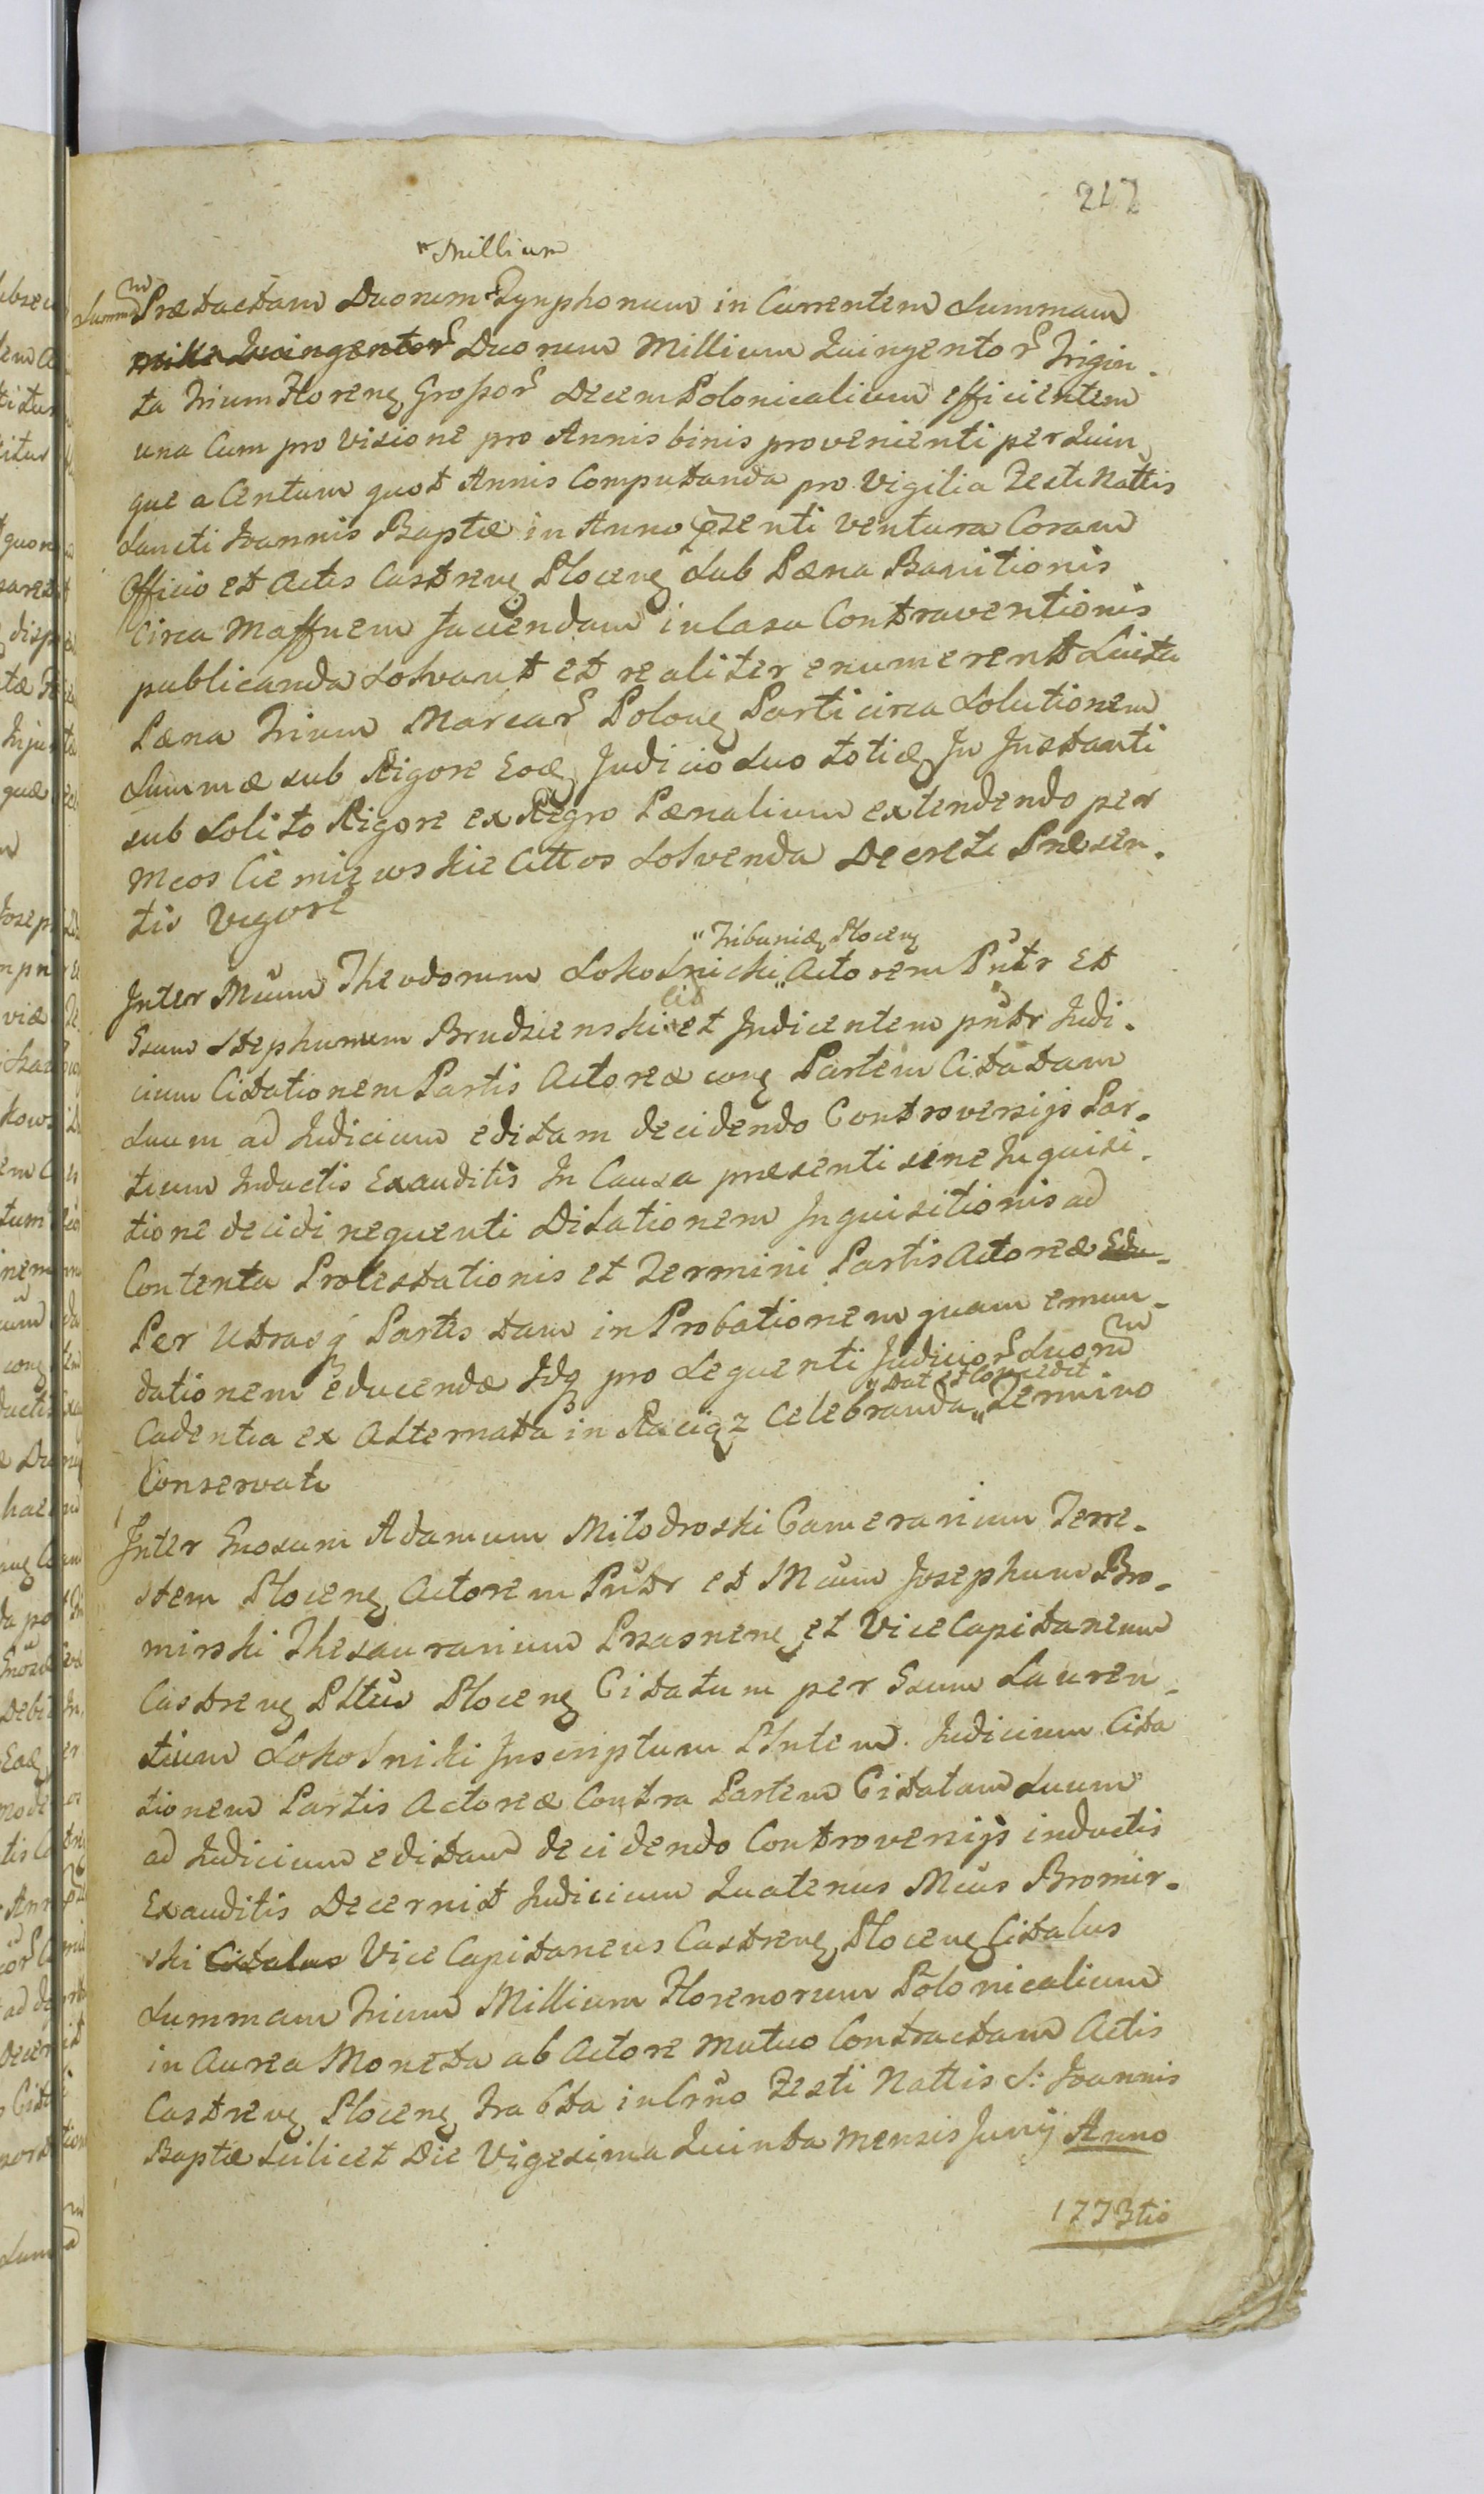 217
„Millium
Summam Prætactam Duorum „Tynphonum in Currentem Summam
mille Quingentor Duorum Millium Quingentor Trigin-
ta Trium Floreng Grossor Decem Polonicalium efficientem
una Cum provisione pro Annis binis provenienti per Quin
que a Centum quot Annis Computanda pro Vigilia Festi Nattis
Sancti Joannis Baptæ in Anno pzenti Ventura Coram
Officio et Actis Castreng Ploceng Sub Pæna Banitionis
Circa Maffnem faciendam in Casu Contraventionis
publicanda Solvant et realiter enumerent Luita
Pæna Trium Marcar Polong Parti circa Solutionem
Summæ sub Rigore Eoq Judicio Suo totiq In Instanti
sub Solito Rigore ex Regro Pænalium extendendo per
Mcos Ciemiewskie Cittos Solvenda Decreti Præsen-
tis Vigore
„Tribunid Ploceng
Inter Mcum Theodorum Sokolnicki „Actorem Pntr Et
Gsum Stephanum Brudzienski Cit et Judicentem pntr Judi-
cium Citationem Partis Actoreæ cong Partem Citatam
Suum ad Judicium editam decidendo Controversijs Par-
tium Inductis Exauditis In Causa præsenti sine Inquisi-
tione decidi nequenti Dilationem Inquisitionis ad
Contenta Protestationis et Termini Partis Actoreæ Edu-
Per Utrasq Partes tam in Probationem quam emun-
dationem educendæ Idq pro Sequenti Judicior Suorum
„Dat et Concedit
Cadentia ex Alternata in Raciąż Celebranda „Termino
Conservato
Inter Gnosum Adamum Milodroski Camerarium Terre-
stem Ploceng Actorem Pntr et Mcum Josephum Bro-
mirski Thesaurarium Przasneng et Vice Capitaneum
Castreng Pltus Ploceng Citatum per Gsum Lauren-
tium Sokolniki Inscriptum PIntem. Judicium Cita
tionem Partis Actoreæ Contra Partem Citatam Suum
ad Judicium editam decidendo Controversijs inductis
Exauditis Decernit Judicium Quatenus Mcus Bromir-
ski Citatus Vice Capitaneus Castreng Ploceng Citatus
Summam Trium Millium Florenorum Polonicalium
in Aurea Moneta ab Actore mutuo Contractam Actis
Castreng Ploceng Ira 6ta in Crno Festi Nattis S: Joannis
Baptæ scilicet Die Vigesima Quinta mensis Junij Anno
1773tio